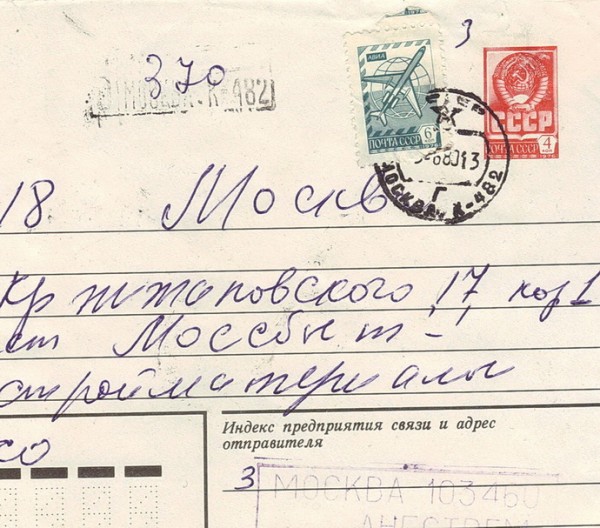 3
370
МОСКВА К-482
АВИА
ПОЧТА СССР 6к
СССР
ПОЧТА СССР 4
МОСКВА К-482
Г
18 Москв
Кржижановского 17, кор 1
Моссбыт-
стройматериалы
со
Индекс предприятия связи и адрес
отправителя
3
МОСКВА 103460
АНГСТРЕМ